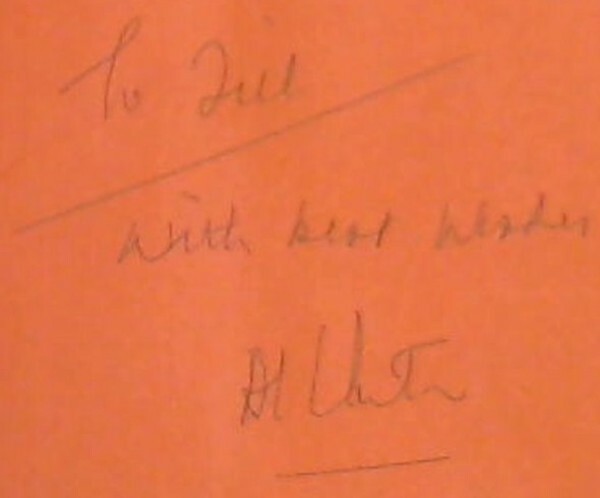 To Jill
with best wishes